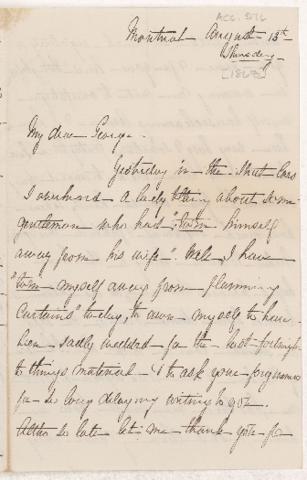 ACC. 576
Montreal August 13th
Thursday
[1863]
My dear George.
Yesterday in the Street Cars
I overheard a lady telling about some
gentleman who had "torn himself
away from his wife". Well, I have
"torn myself away from planning
Curtains" today, to own myself to have
been sadly wedded for the last fortnight
to things material - & to ask your forgiveness
for so long delaying writing to you.
Altho so late let me thank you for